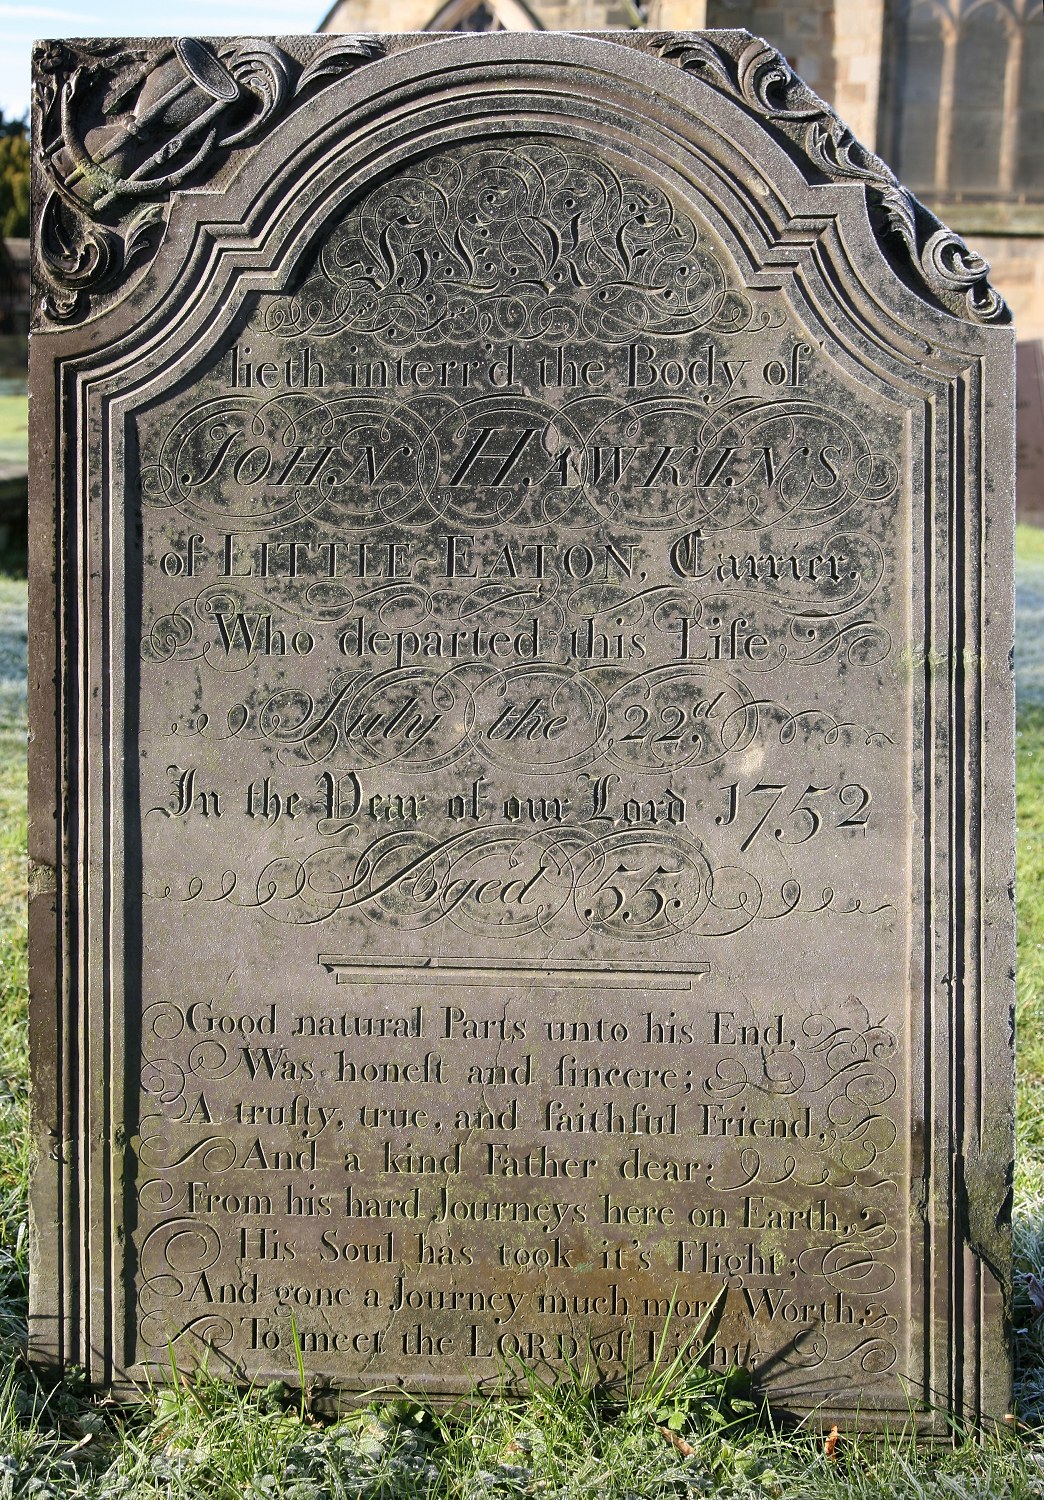 HERE
lieth interr'd the Body of
JOHN HAWKINS
of LITTLE-EATON, Carrier,
Who departed this Life
July the 22d.
In the Year of our Lord 1752
Aged 55.
Good natural Parts unto his End,
Was honeſt and ſincere;
A truſty, true, and faithful Friend,
And a kind Father dear;
From his hard Journeys here on Earth,
His Soul has took it's Flight;
And gone a Journey much more Worth,
To meet the LORD of Light.